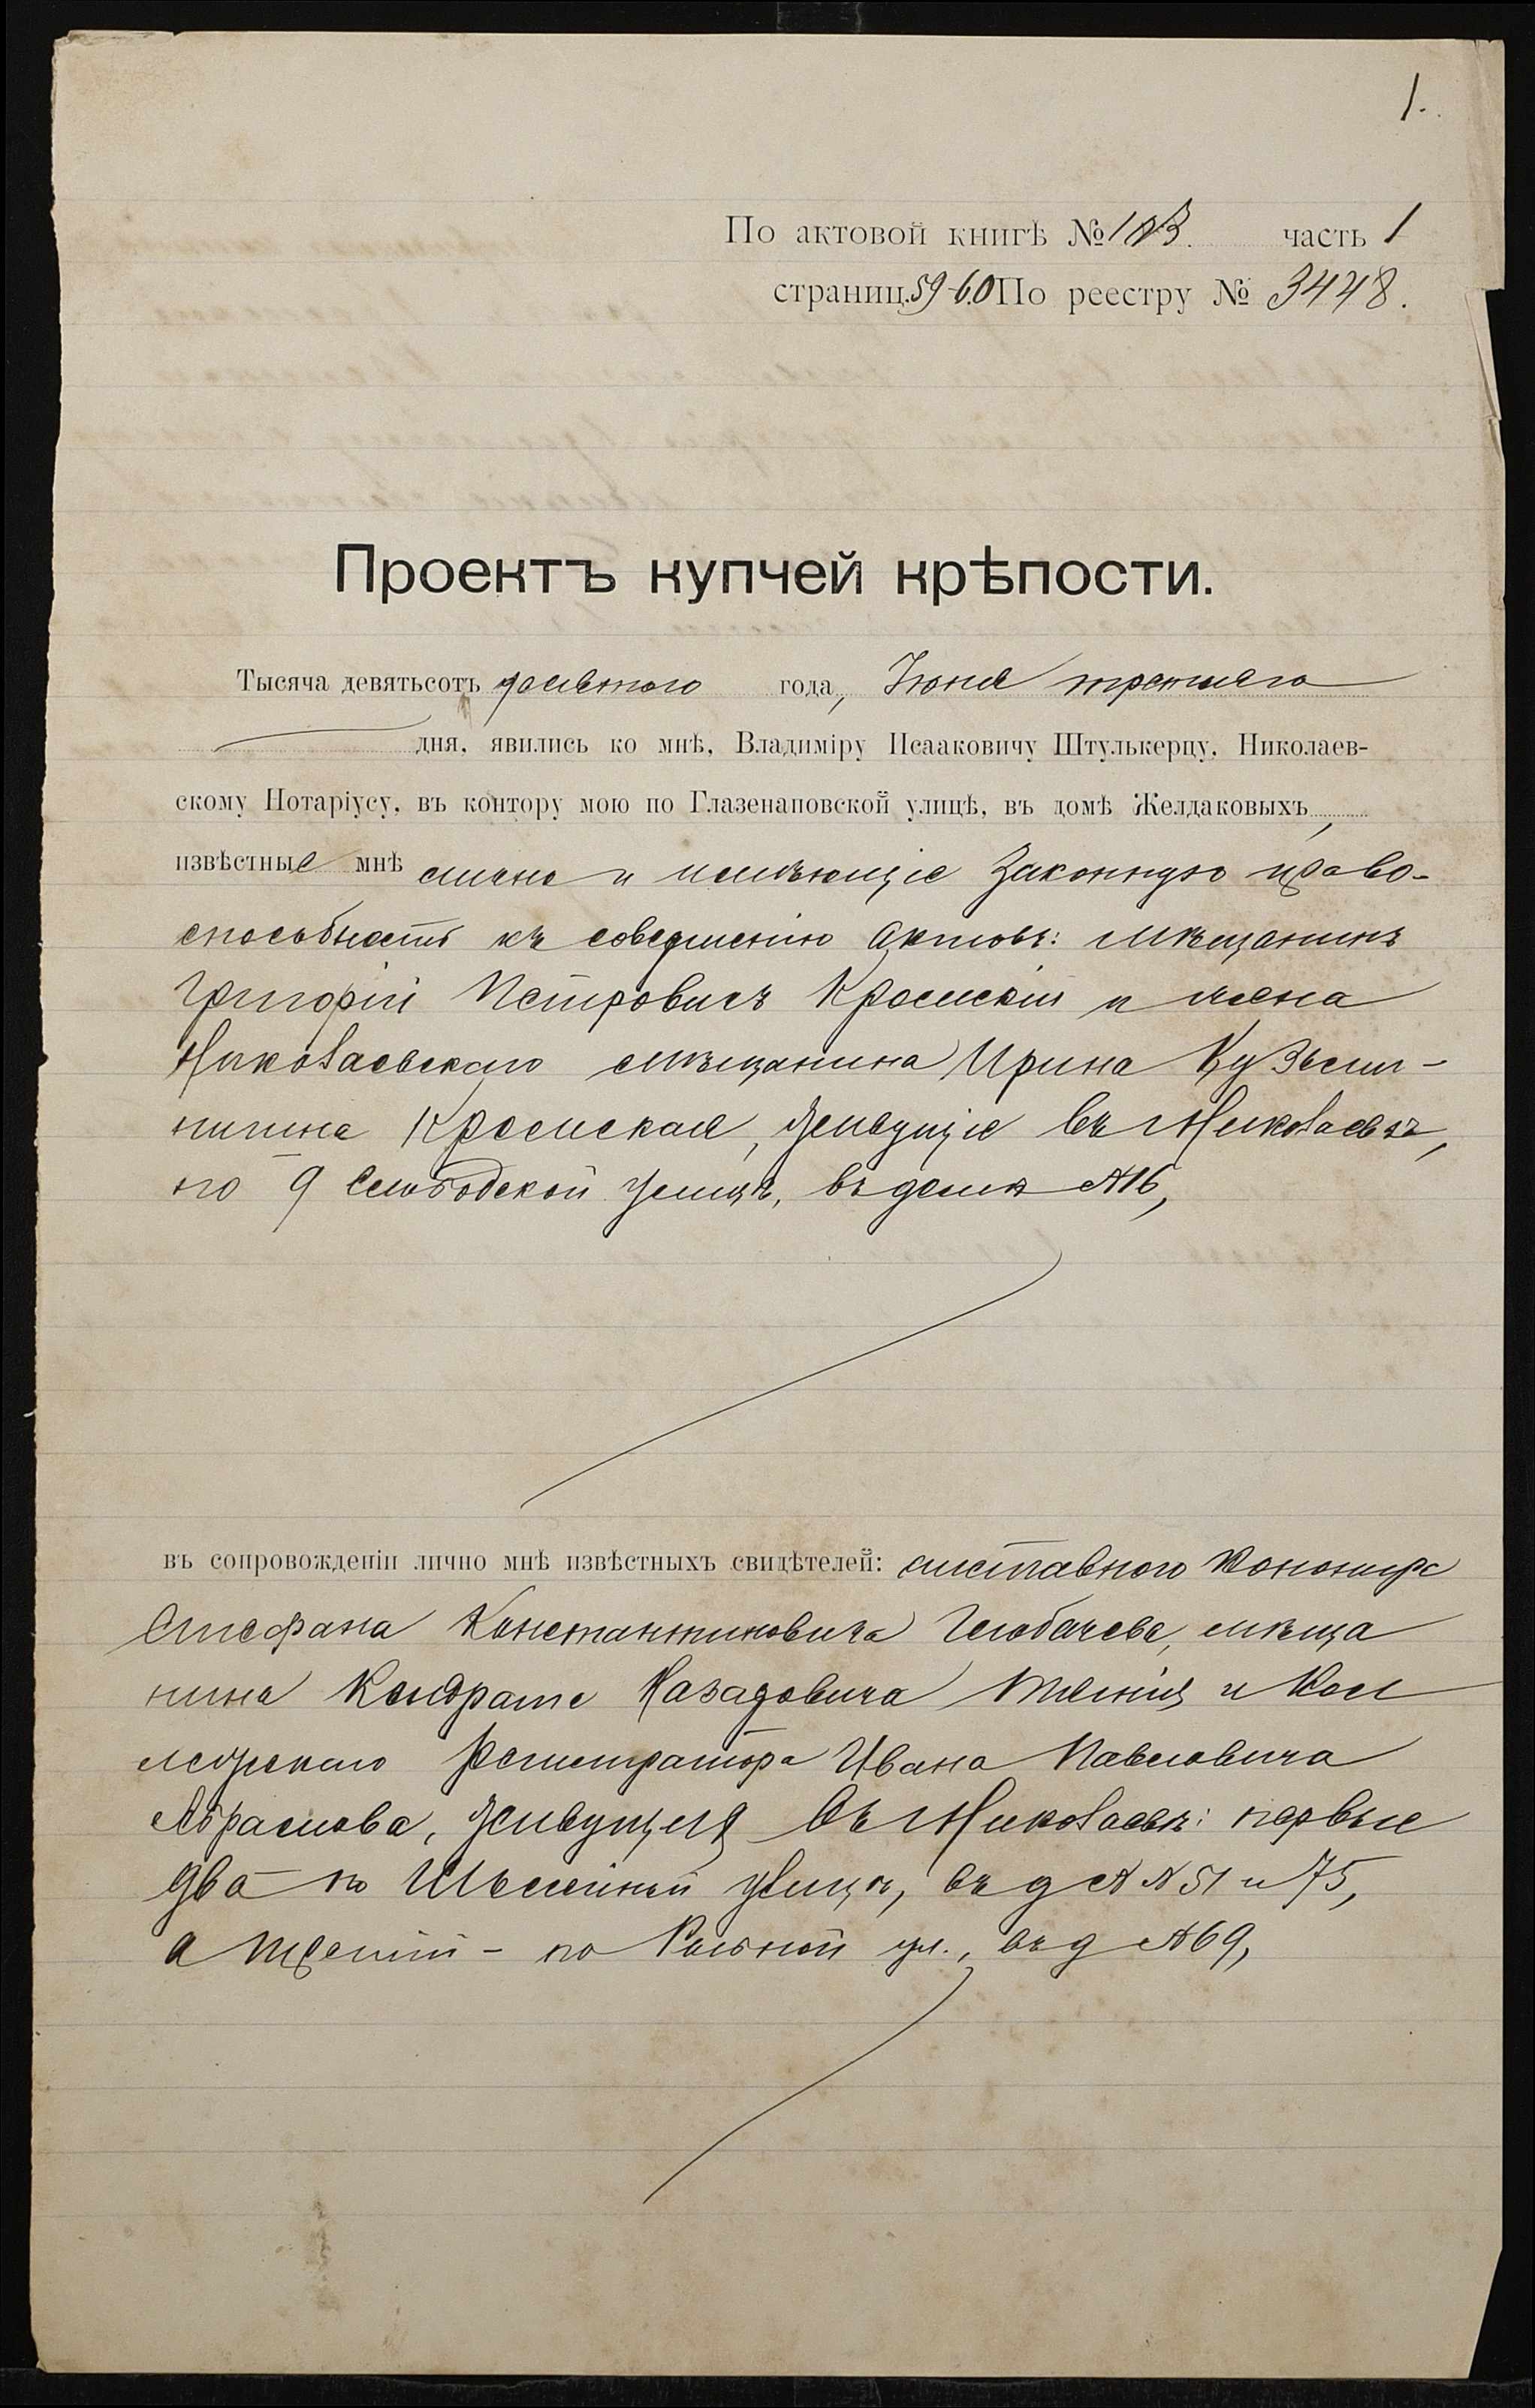 1.
По актовой книгѣ № 123. часть 1
страниц. 59-60 По реестру № 3448.
Проектъ купчей крѣпости.
Тысяча девятьсотъ девятого года, Іюня третьяго
дня, явились ко мнѣ, Владиміру Исааковичу Штулькерцу, Николаев-
скому Нотаріусу, въ контору мою по Глазенаповской улицѣ, въ домѣ Желдаковыхъ,
извѣстные мнѣ лично и имѣющіе законную право-
способность къ совершенію актовъ: мѣщанинъ
Григорій Петровичъ и жена
Николаевскаго мѣщанина Ирина Кузьми-
нична живущіе въ Николаевѣ,
по 9 Слободской улицѣ, въ домѣ № 16,
въ сопровожденіи лично мнѣ извѣстныхъ свидѣтелей: отставного
Стефана Константиновича мѣща
нина Кондрата Назаровича и Кол
лежскаго Регистратора Ивана Павловича
Абрамова, живущихъ въ Николаевѣ: первые
два по улицѣ, въ д №№ 51 и 75,
а третій - по ул., въ д № 69,